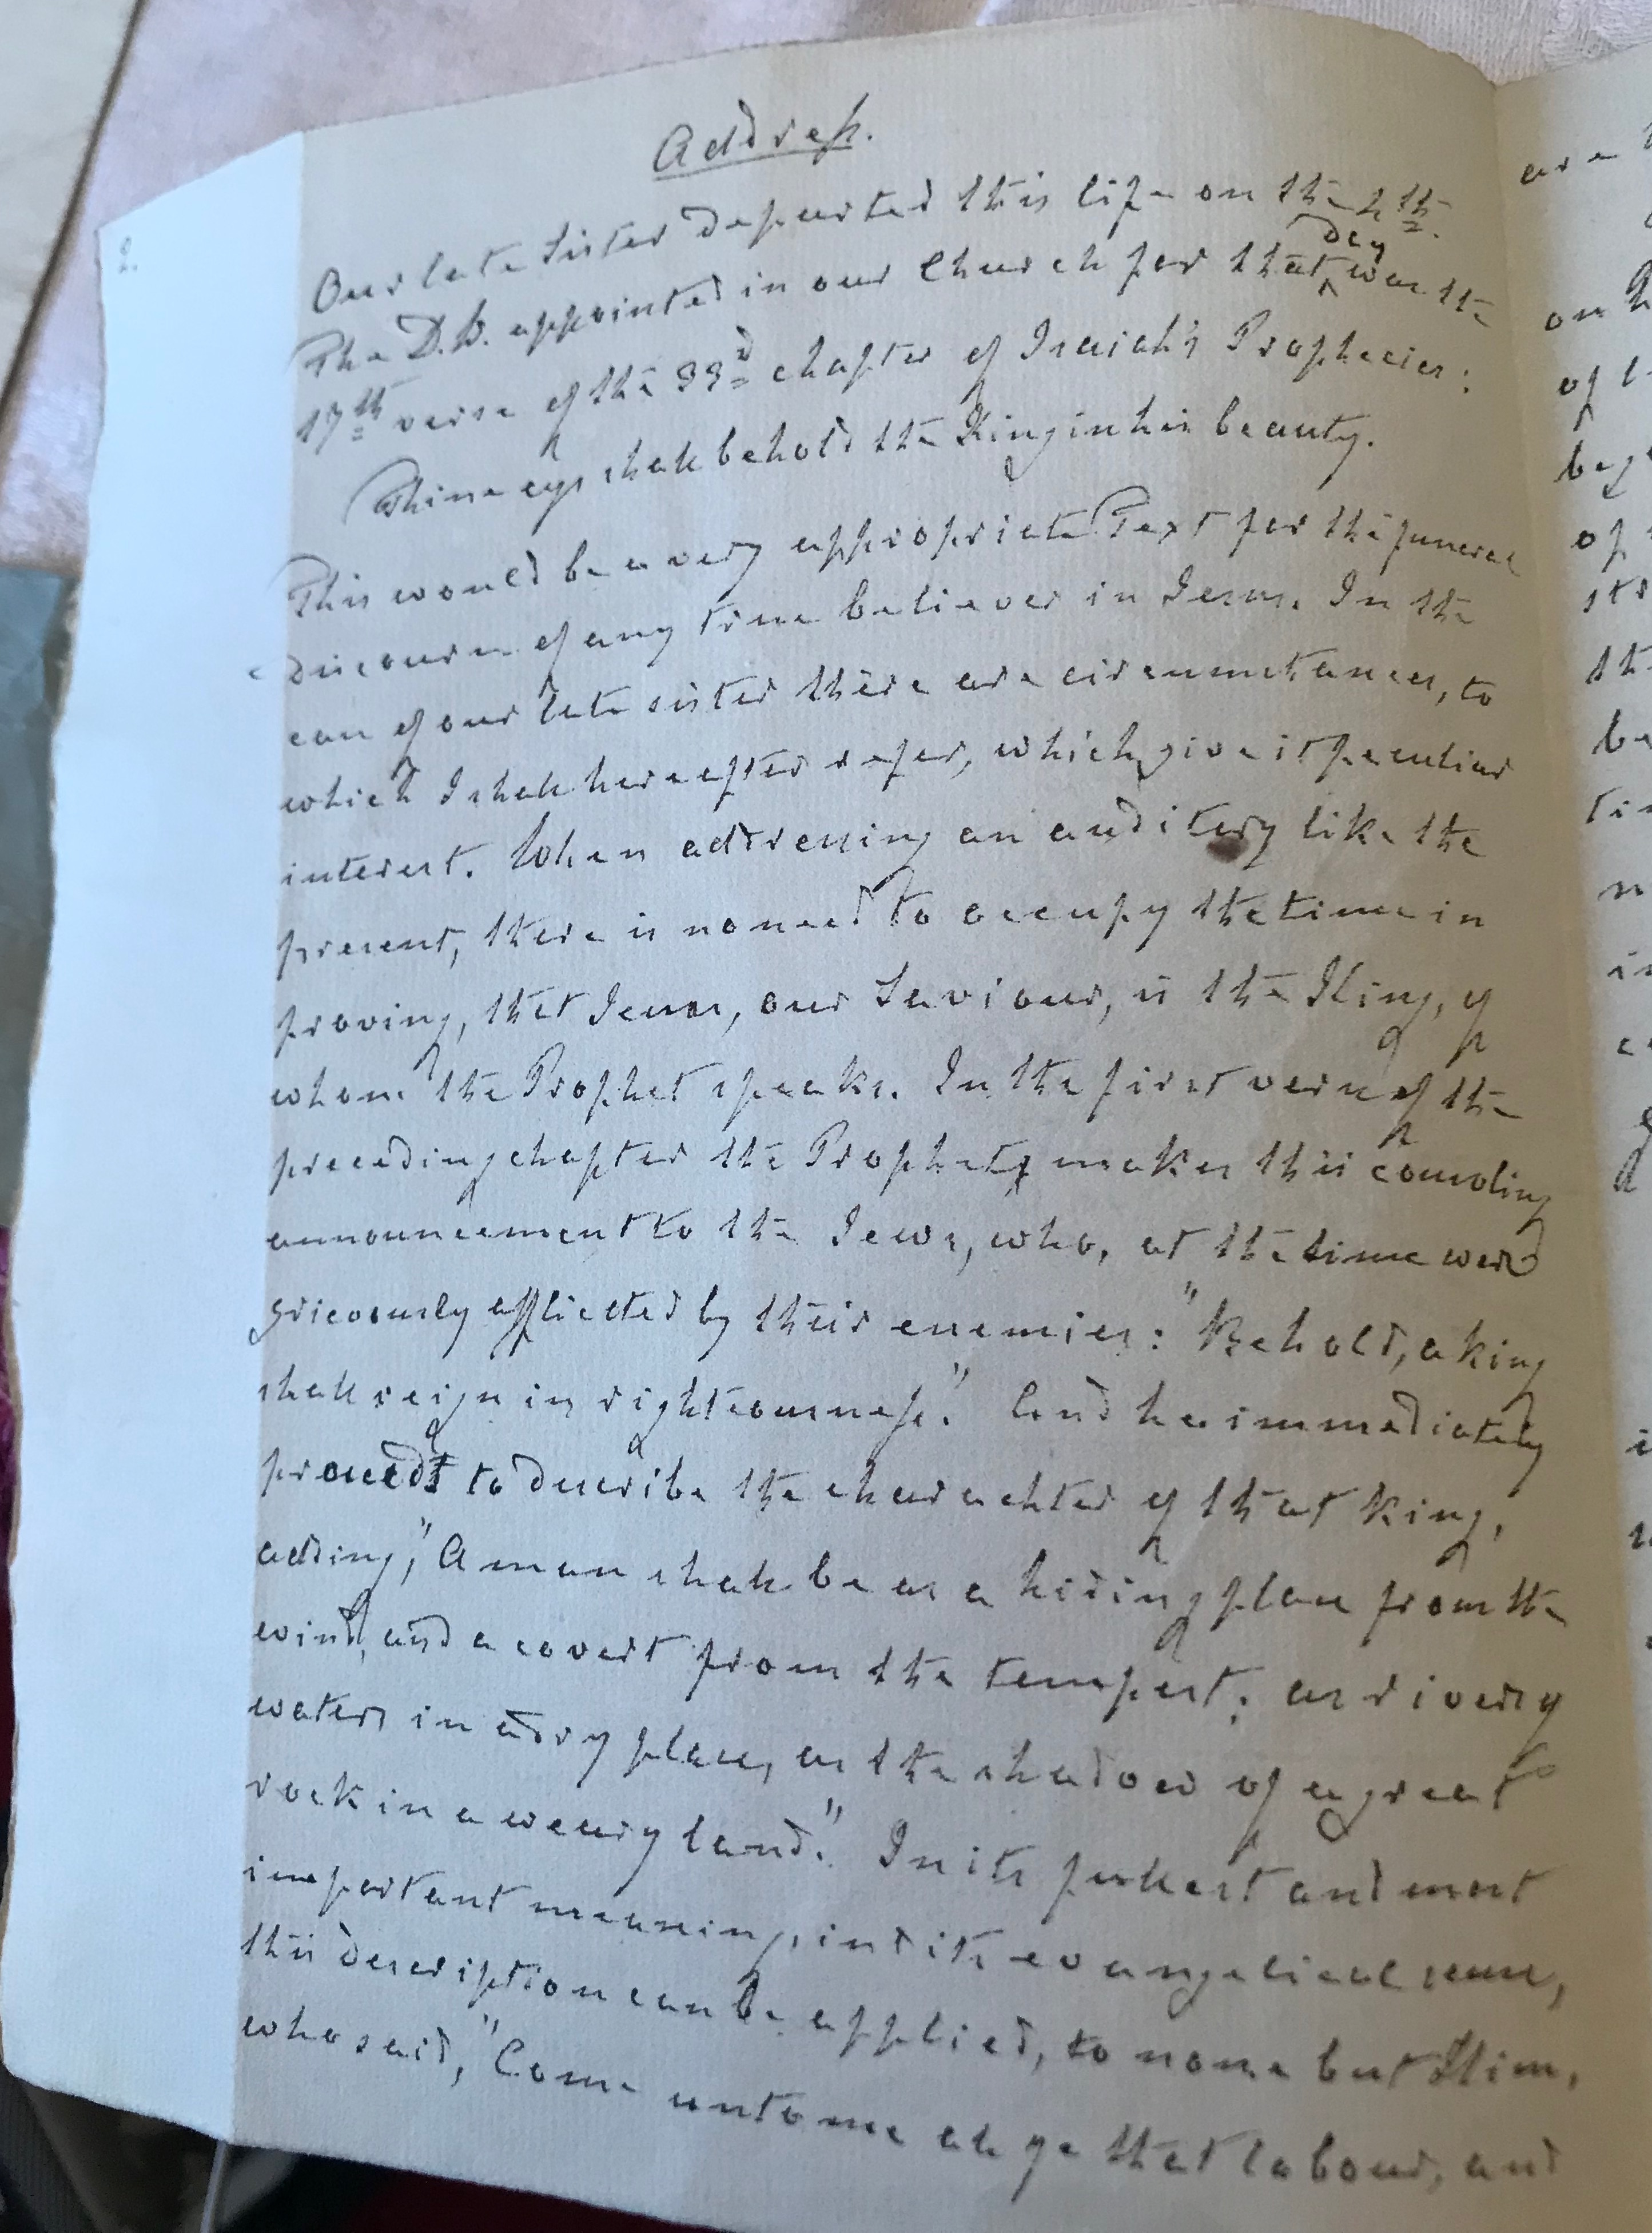 2.
Address.
Our late Sister departed this life on the 4th.
The D.W. appointed in our Church for that day was the
17th verse of the 33d chapter of Isaiah's Prophecies:
Thine eyes shall behold the King in his beauty.
This would be a very appropriate Text for the funeral
discourse of any true believer in Jesus. In the
case of our late sister there are circumstances, to
which I shall hereafter refer, which give it peculiar
interest. When addressing an auditory like the
present, there is no need to occupy the time in
proving, that Jesus, our Saviour, is the King, of
whom the Prophet speaks. In the first verse of the
preceding chapter the Prophet makes this consoling
announcement to the Jews, who, at the time were
grievously afflicted by their enemies: "Behold, a king
shall reign in righteousness." And he immediately
proceeds to describe the charachter of that King,
adding, "A man shall be as a hiding place from the
wind, and a covert from the tempest; as rivers of
waters in a dry place, as the shadow of a great
rock in a weary land." In its fullest and most
important meaning, in its evangelical sense,
this description can be applied, to none but Him,
who said, "Come unto me all ye that labour, and
are
on
of